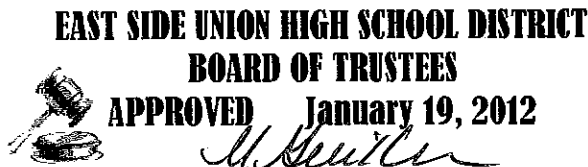 EAST SIDE UNION HIGH SCHOOL DISTRICT
BOARD OF TRUSTEES
APPROVED January 19, 2012